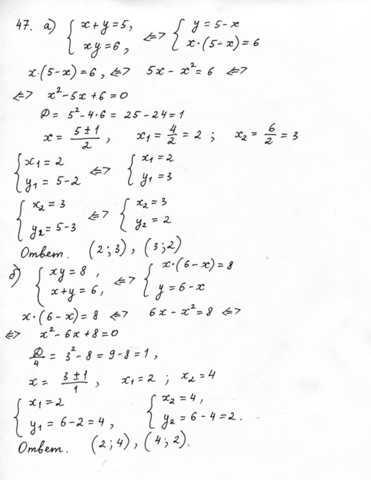 47. а) { x+y=5, xy=6, <=> { y=5-x x·(5-x)=6
x·(5-x)=6, <=> 5x-x²=6 <=>
<=> x²-5x+6=0
D=5²-4·6=25-24=1
x=(5±1)/2, x₁=4/2=2; x₂=6/2=3
{ x₁=2 y₁=5-2 <=> { x₁=2 y₁=3
{ x₂=3 y₂=5-3 <=> { x₂=3 y₂=2
Ответ. (2;3), (3;2)
б) { xy=8, x+y=6, <=> { x·(6-x)=8 y=6-x
x·(6-x)=8 <=> 6x-x²=8 <=>
<=> x²-6x+8=0
D/4=3²-8=9-8=1,
x=(3±1)/1, x₁=2; x₂=4
{ x₁=2 y₁=6-2=4, { x₂=4, y₂=6-4=2.
Ответ. (2;4), (4;2).